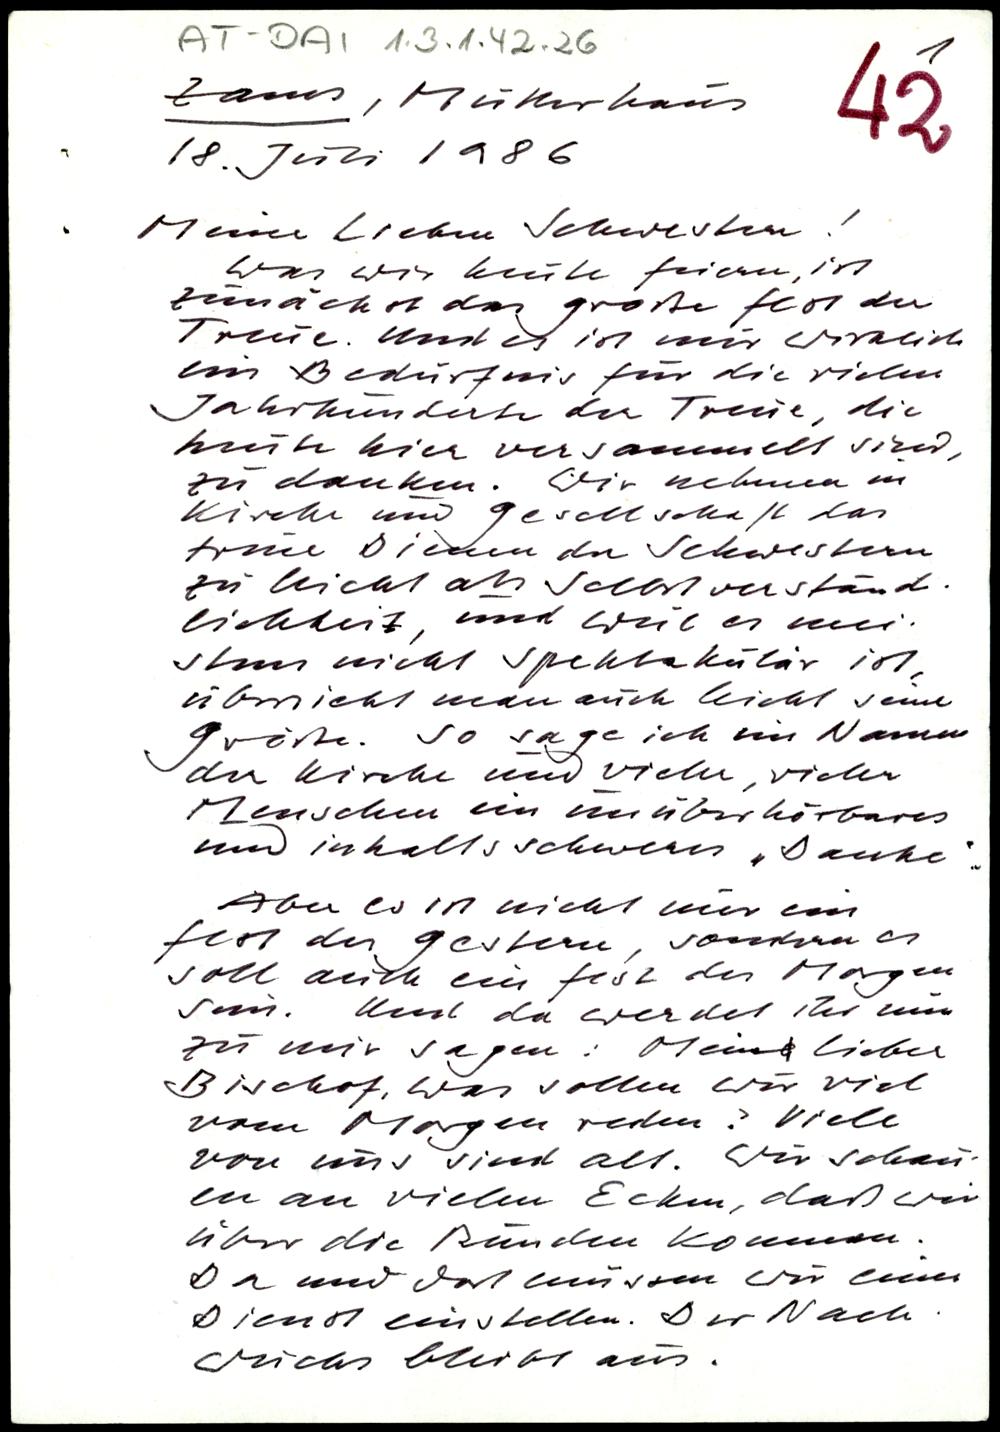 AT-DAI 1.3.1.42.26
1
42
Zams, Mutterhaus
18. Juli 1986
Meine Lieben Schwestern!
Was wir heute feiern, ist
zunächst das große Fest der
Treue. Und es ist mir wirklich
ein Bedürfnis für die vielen
Jahrhunderte der Treue, die
heute hier versammelt sind,
zu danken. Wir nehmen in
Kirche und Gesellschaft das
treue Dienen der Schwestern
zu leicht als Selbstverständ-
lichkeit, und weil es mei-
stens nicht spektakulär ist,
übersieht man auch leicht seine
Größe. So sage ich im Namen
der Kirche und vieler, vieler
Menschen ein unüberhörbares
und inhaltsschweres „Danke".
Aber es ist nicht nur ein
Fest des Gestern, sondern es
soll auch ein Fest des Morgen
sein. Und da werdet ihr nun
zu mir sagen: Mein lieber
Bischof, was sollen wir viel
vom Morgen reden? Viele
von uns sind alt. Wir schau-
en an vielen Ecken, daß wir
über die Runden kommen.
Da und dort müssen wir einen
Dienst einstellen. Der Nach-
wuchs bleibt aus.